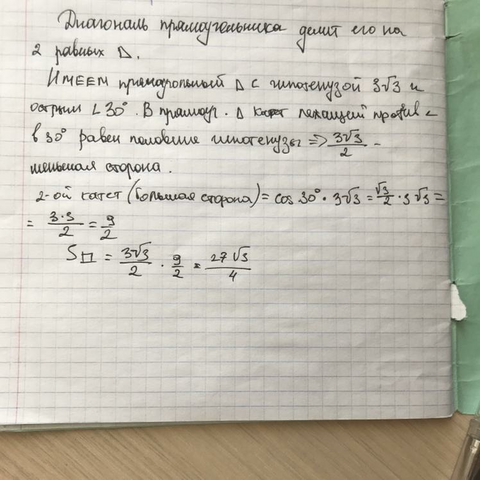 Диагональ прямоугольника делит его на
2 равных Δ.
Имеем прямоугольный Δ с гипотенузой 3√3 и
острым ∠30°. В прямоуг. Δ катет лежащий против ∠
в 30° равен половине гипотенузы => 3√3/2 -
меньшая сторона.
2-ой катет (большая сторона) = cos 30° · 3√3 = √3/2 · 3√3 =
= 3·3/2 = 9/2
S▭ = 3√3/2 · 9/2 = 27√3/4